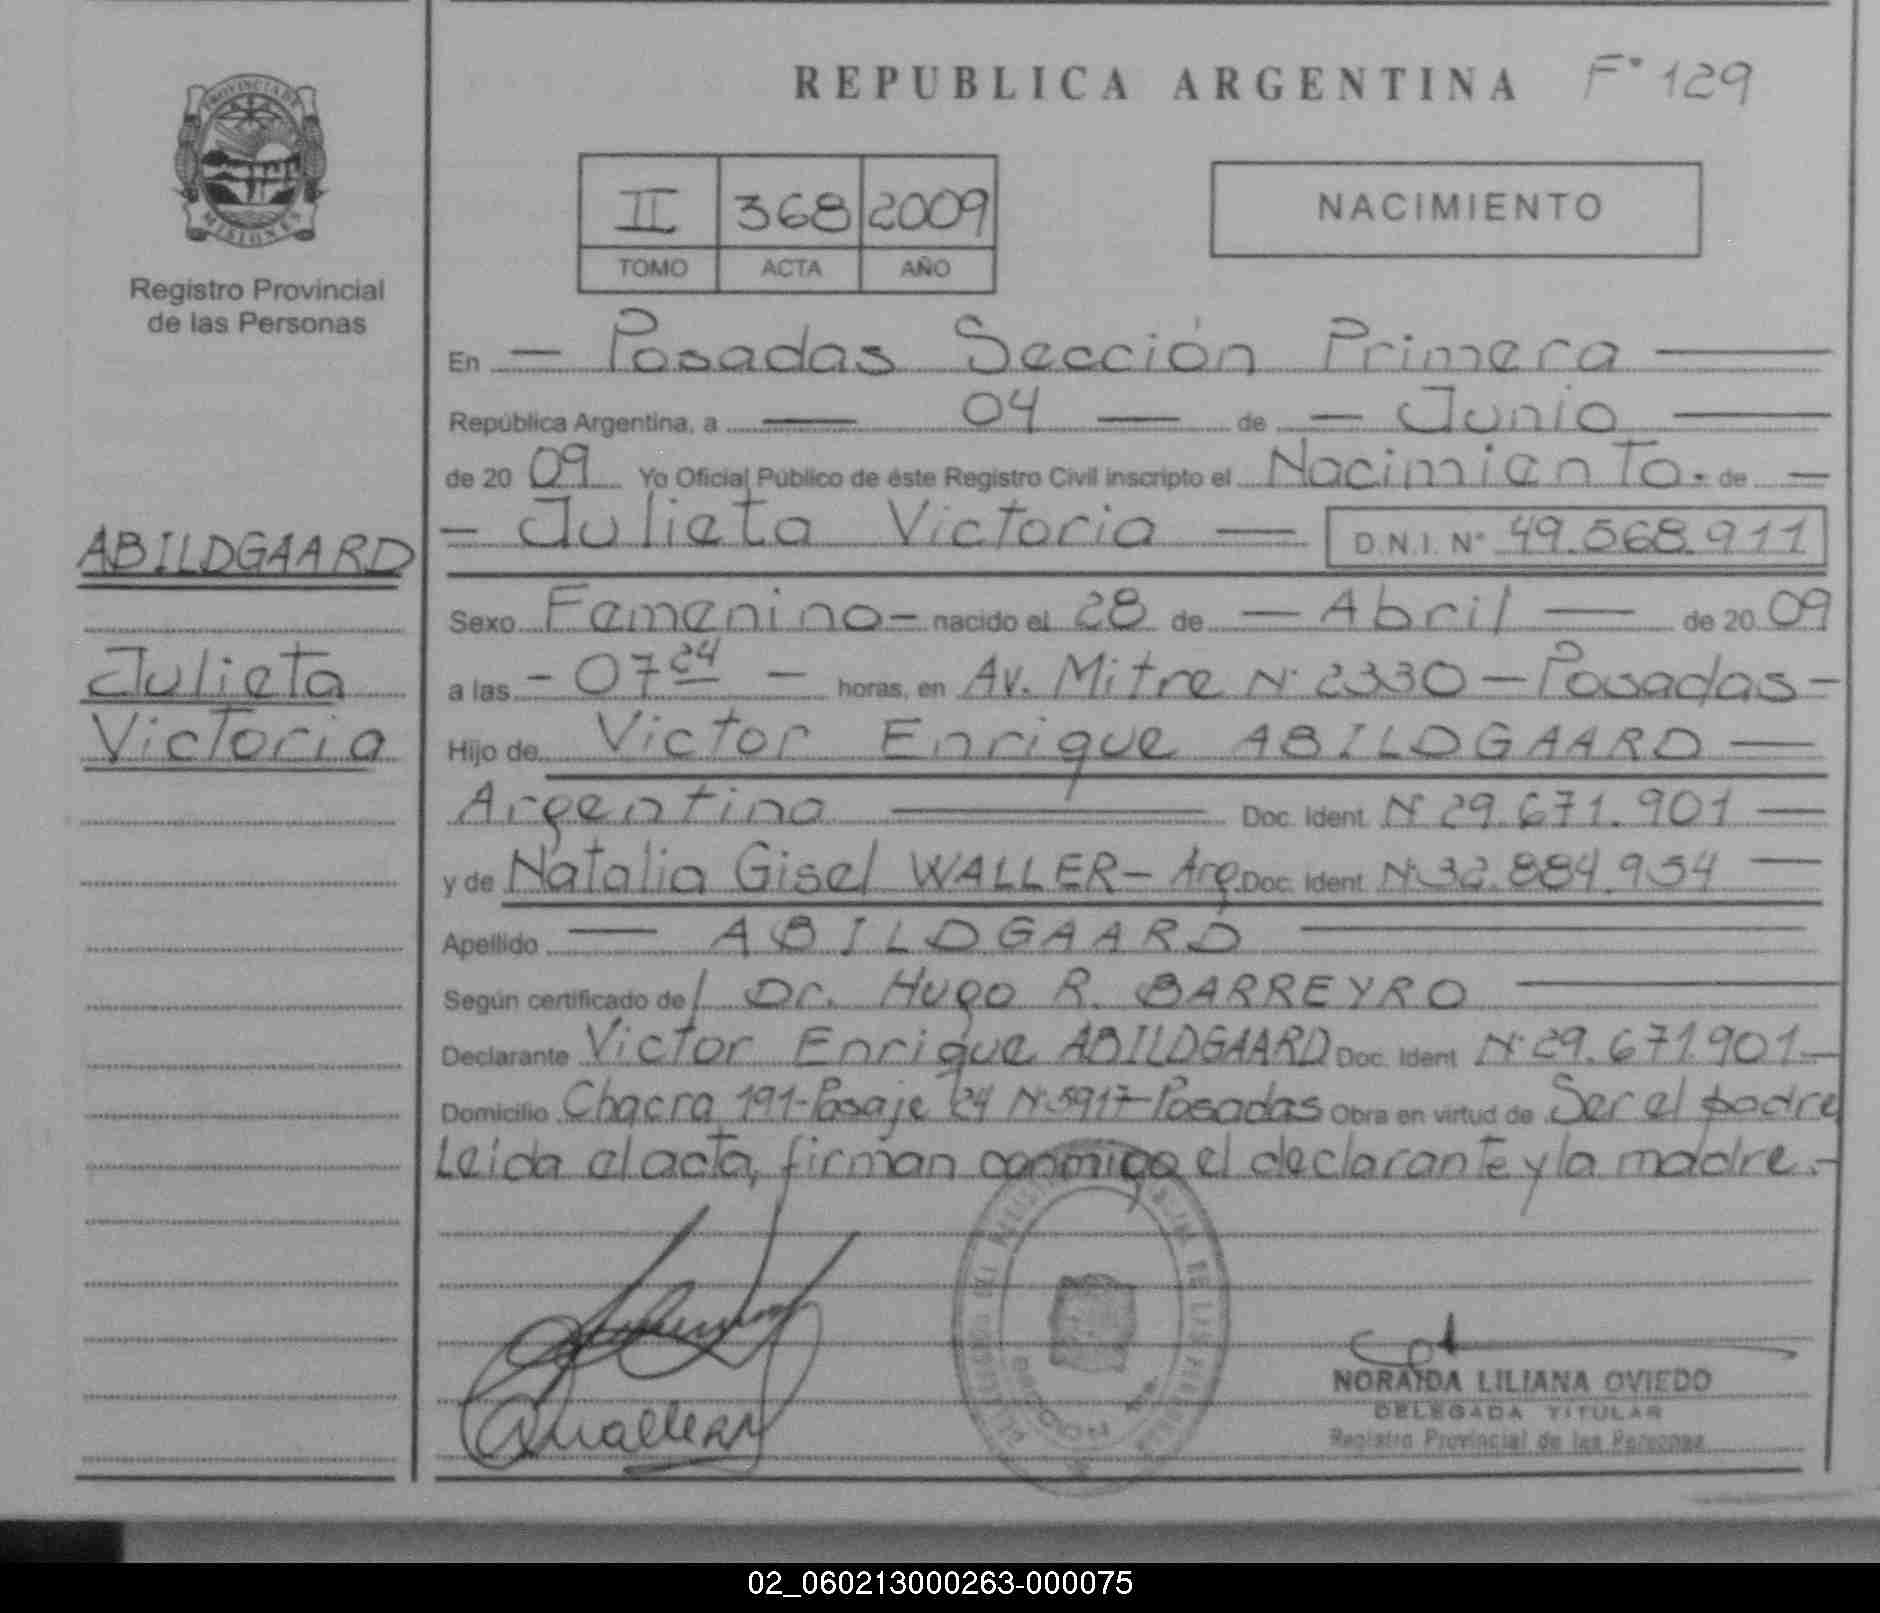 REPUBLICA ARGENTINA F° 129
PROVINCIA DE
MISIONES
Registro Provincial
de las Personas
II 368 2009
TOMO ACTA AÑO
NACIMIENTO
En — Posadas Sección Primera —
República Argentina, a — 04 — de — Junio —
de 20 09 Yo Oficial Público de éste Registro Civil inscripto el Nacimiento. de —
— Julieta Victoria — D.N.I. N° 49.568.911
ABILDGAARD
Julieta
Victoria
Sexo Femenino — nacido el 28 de — Abril — de 20 09
a las — 07 24 — horas, en Av. Mitre N° 2330 — Posadas —
Hijo de Victor Enrique ABILDGAARD —
Argentino — Doc. Ident. N° 29.671.901 —
y de Natalia Gisel WALLER — Arg. Doc. Ident. N° 32.884.954 —
Apellido — ABILDGAARD —
Según certificado del Dr. Hugo R. BARREYRO —
Declarante Victor Enrique ABILDGAARD Doc. Ident N° 29.671.901 —
Domicilio Chacra 191-Pasaje 24 N° 5917-Posadas Obra en virtud de Ser el padre
Leida el acta, firman conmigo el declarante y la madre.-
NORAIDA LILIANA OVIEDO
DELEGADA TITULAR
Registro Provincial de las Personas
02_060213000263-000075